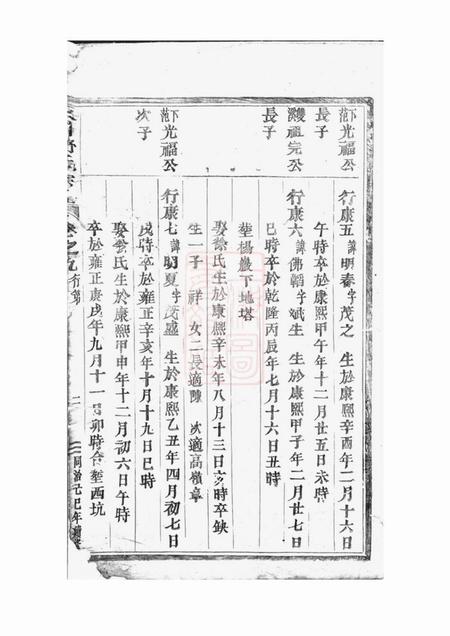 下范光福公
長子
行康五諱明春字茂之 生於康熙辛酉年二月十六日
午時卒於康熙甲午年十二月廿五日未時
雙溪祖完公
長子
行康六諱佛韜字斌生 生於康熙甲子年二月廿七日
巳時卒於乾隆丙辰年七月十六日丑時
塟楊巖下地塔
娶徐氏生於康熙辛未年八月十三日亥時卒缺
生一子 祥 女二長適陳 次適高橫章
下范光福公
次子
行康七諱明夏字茂盛 生於康熙乙丑年四月初七日
戌時卒於雍正辛亥年十月十九日巳時
娶徐氏生於康熙甲申年十二月初六日午時
卒於雍正庚戌年九月十一日卯時合塟西坑
卷之九行第
二
同治己巳年